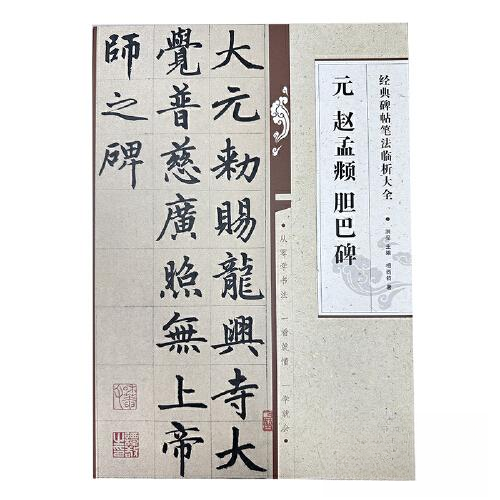 经典碑帖笔法临析大全
元 赵孟頫 胆巴碑
主编
著
大元勅賜龍興寺大
覺普慈廣照無上帝
師之碑
•从零学书法 一看就懂 一学就会•